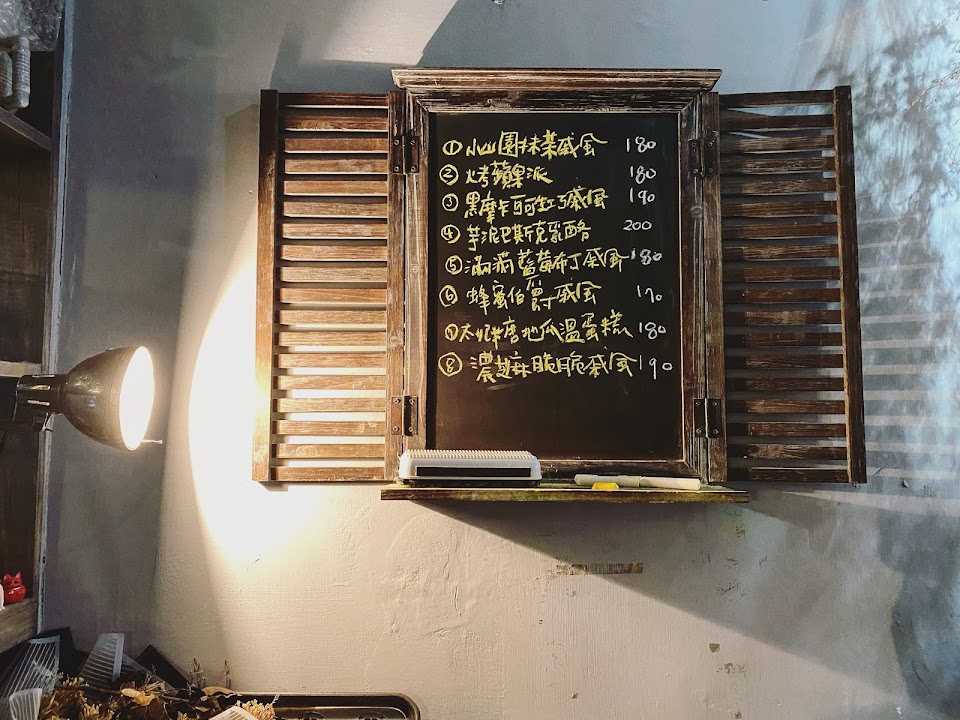 ① 小山園抹茶戚风 180
② 烤蘋果派 180
③ 黑摩卡可可戚风 190
④ 芋泥巴斯克乳酪 200
⑤ 滿滿藍莓布丁戚风 180
⑥ 蜂蜜伯爵戚风 170
⑦ 地瓜溫蛋糕 180
⑧ 濃芝麻脆脆戚风 190